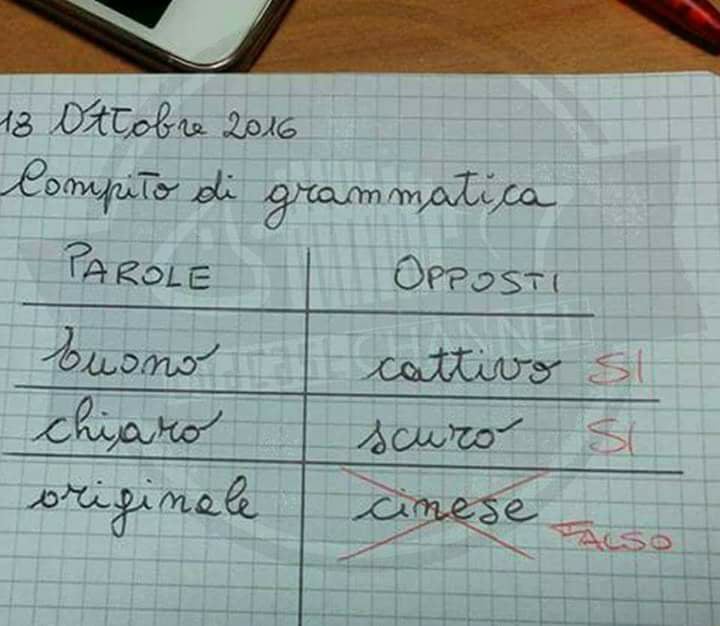 13 Ottobre 2016
Compito di grammatica
PAROLE OPPOSTI
buono cattivo SI
chiaro scuro SI
originale cinese FALSO